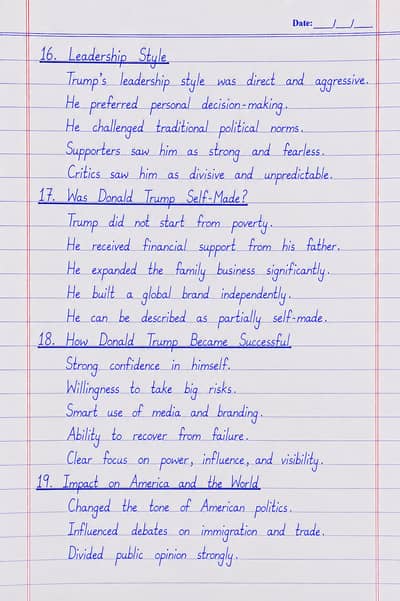 Date:___/___/____
16. Leadership Style
Trump's leadership style was direct and aggressive.
He preferred personal decision-making.
He challenged traditional political norms.
Supporters saw him as strong and fearless.
Critics saw him as divisive and unpredictable.
17. Was Donald Trump Self-Made?
Trump did not start from poverty.
He received financial support from his father.
He expanded the family business significantly.
He built a global brand independently.
He can be described as partially self-made.
18. How Donald Trump Became Successful
Strong confidence in himself.
Willingness to take big risks.
Smart use of media and branding.
Ability to recover from failure.
Clear focus on power, influence, and visibility.
19. Impact on America and the World
Changed the tone of American politics.
Influenced debates on immigration and trade.
Divided public opinion strongly.